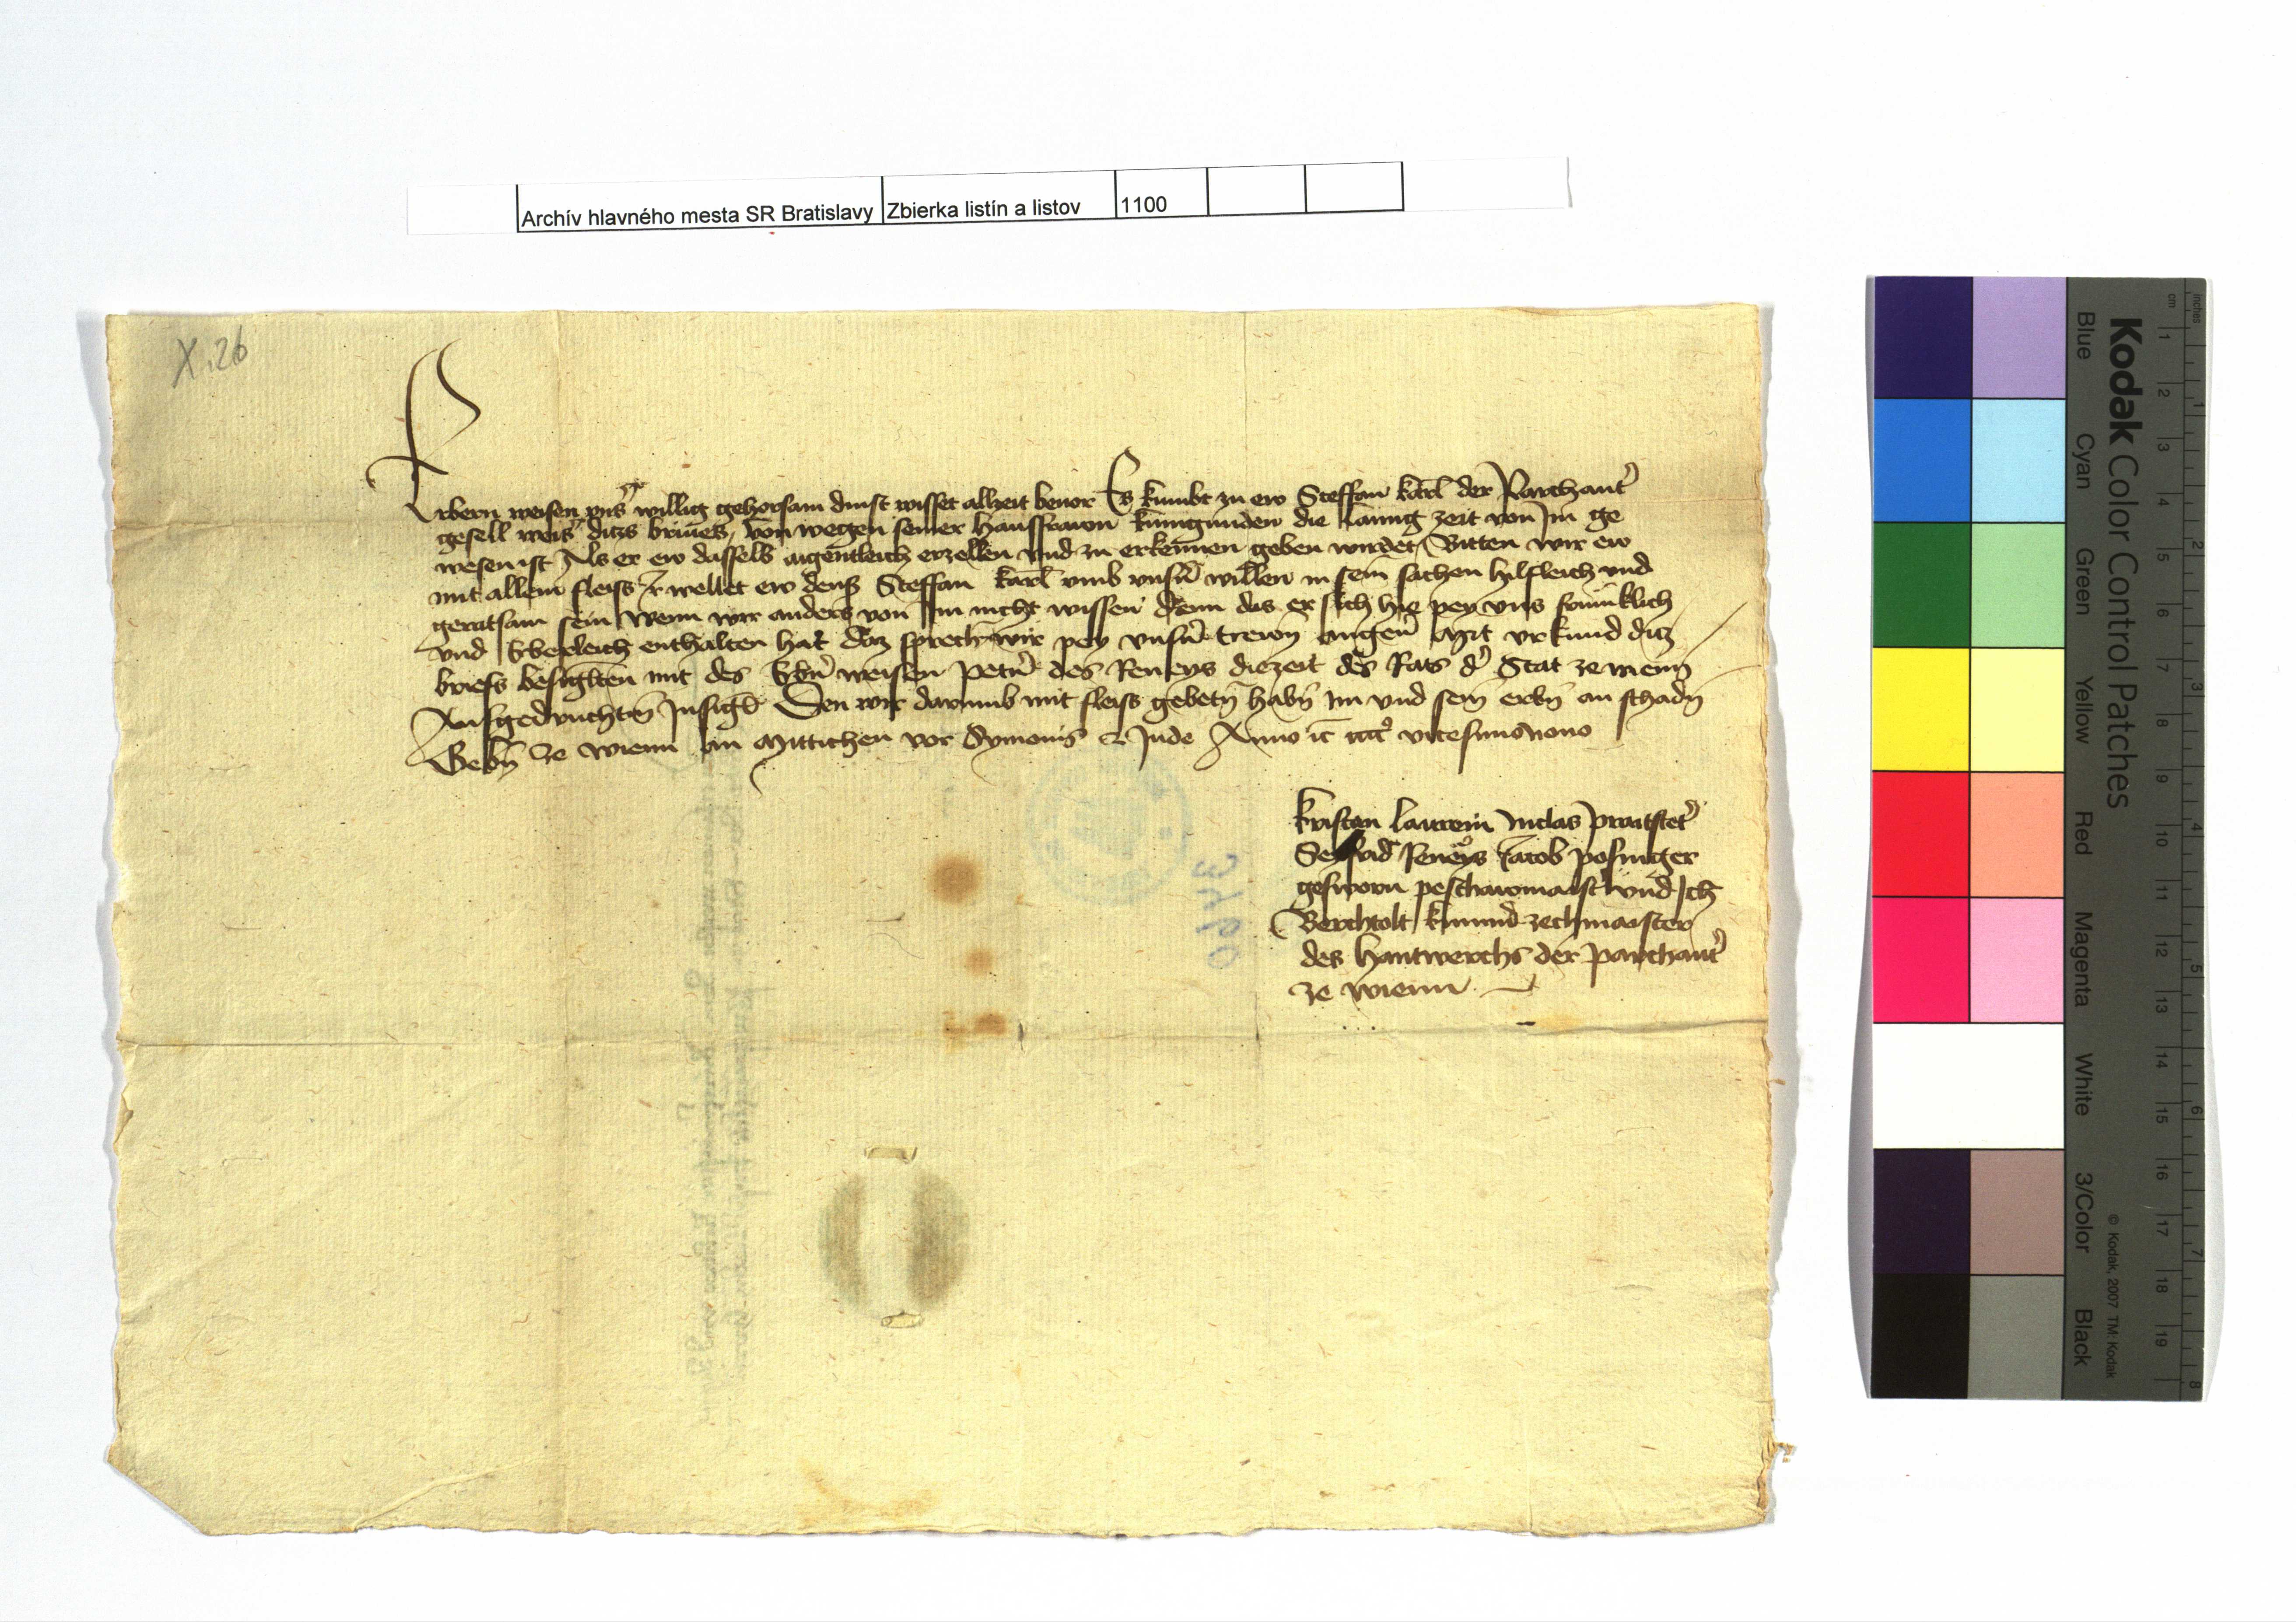 Archív hlavného mesta SR Bratislavy Zbierka listín a listov 1100
X.26
Erbern weisen vnser willig gehorsam dinst wisset alzeit beuor Es kumbt zu ew Steffan karl der Parchant
gesell weiser diczs briues, von wegen seiner hausfrawn kunigunden die lanng zeit von Im ge
wesen ist Als er ew dasselb aigentleich erzellen vnd zu erkennen geben wirdet Bitten wir ew
mit allem fleiss Ir wellet ew dens Steffan karl vmb vnsern willen in sein sachen hilfleich vnd
geratsam sein wenn wir anders von im nicht wissen denn das er sich hie pey vns frumklich
vnd Erberleich enthalten hat daz sprech wir pey vnsern trewn vngeuer Mit vrkund dicz
briefs besiglten mit des Erbern weisen Petern des Reneys diezeit des Rats der Stat ze wienn
Aufgedruchten Insigel Den wir darumb mit fleiss gebeten haben Im vnd sein erben an schaden
Geben ze wienn an Mittichen vor Symonis et Jude Anno vicesimonono
kristan laurein Niclas prantsteter
Reneys Jacob posinger
gesworn peschawmaister vnd Ich
Berchtolt zechmaister
des hantwerchs der parchanter
ze wienn
0643
Kodak Color Control Patches
Blue Cyan Green Yellow Red Magenta White 3/Color Black
© Kodak, 2007 TM: Kodak
inches 1 2 3 4 5 6 7 8
cm 1 2 3 4 5 6 7 8 9 10 11 12 13 14 15 16 17 18 19